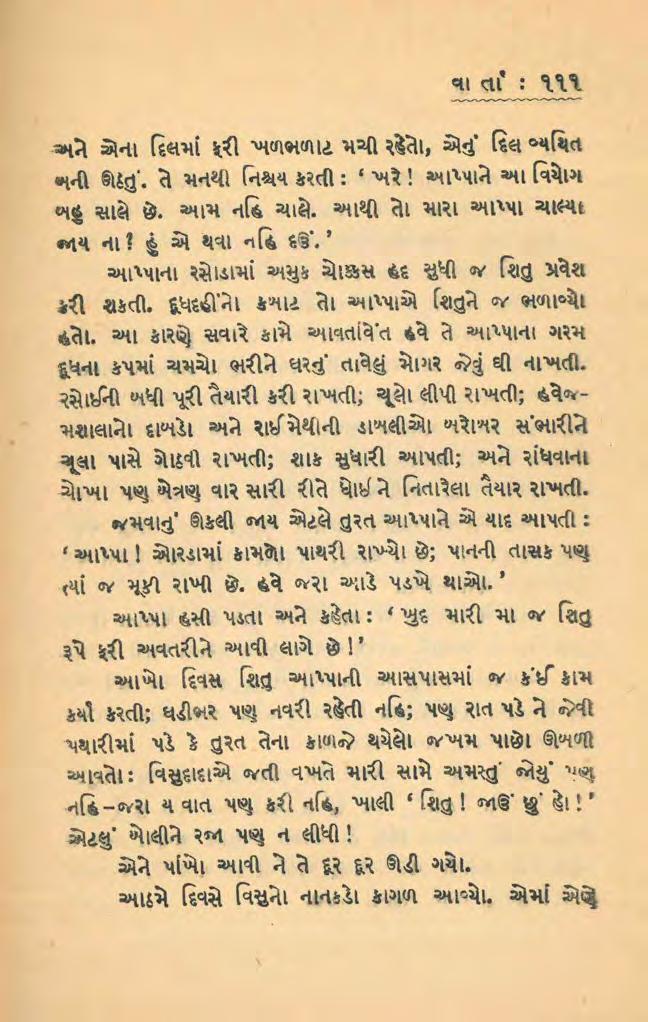 વાર્તા : ૧૧૧
અને એના દિલમાં ફરી ખળભળાટ મચી રહેતો, એનું દિલ વ્યથિત
બની ઊઠતું. તે મનથી નિશ્ચય કરતી : ‘ ખરે ! આપ્પાને આ વિયોગ
બહુ સાલે છે. આમ નહિ ચાલે. આથી તો મારા આપ્પા ચાલ્યા
જાય ના ? હું એ થવા નહિ દઉં. ’
આપ્પાના રસોડામાં અમુક ચોક્કસ હદ સુધી જ શિતુ પ્રવેશ
કરી શકતી. દૂધદહીંનો કબાટ તો આપ્પાએ શિતુને જ ભળાવ્યો
હતો. આ કારણે સવારે કામે આવતાંવેંત હવે તે આપ્પાના ગરમ
દૂધના કપમાં ચમચો ભરીને ઘરનું તાવેલું મોગર જેવું ઘી નાખતી.
રસોઈની બધી પૂરી તૈયારી કરી રાખતી; ચૂલો લીપી રાખતી; હવેજ-
મશાલાનો દાબડો અને રાઈમેથીની ડાબલીઓ બરોબર સંભારીને
ચૂલા પાસે ગોઠવી રાખતી; શાક સુધારી આપતી; અને રાંધવાના
ચોખા પણ બેત્રણ વાર સારી રીતે ધોઈ ને નિતારેલા તૈયાર રાખતી.
જમવાનું ઊકલી જાય એટલે તુરત આપ્પાને એ યાદ આપતી :
‘ આપ્પા ! ઓરડામાં કામળો પાથરી રાખ્યો છે; પાનની તાસક પણ
ત્યાં જ મૂકી રાખી છે. હવે જરા આડે પડખે થાઓ. ’
આપ્પા હસી પડતા અને કહેતા : ‘ ખુદ મારી મા જ શિતુ
રૂપે ફરી અવતરીને આવી લાગે છે ! ’
આખો દિવસ શિતુ આપ્પાની આસપાસમાં જ કંઈ કામ
કર્યાં કરતી; ઘડીભર પણ નવરી રહેતી નહિ; પણ રાત પડે ને જેવી
પથારીમાં પડે કે તુરત તેના કાળજે થયેલો જખમ પાછો ઊબળી
આવતો : વિસુદાદાએ જતી વખતે મારી સામે અમસ્તું જોયું પણ
નહિ – જરા ય વાત પણ કરી નહિ, ખાલી ‘ શિતુ ! જાઉં છું હો ! ’
એટલું બોલીને રજા પણ ન લીધી !
એને પાંખો આવી ને તે દૂર દૂર ઊડી ગયો.
આઠમે દિવસે વિસુનો નાનકડો કાગળ આવ્યો. એમાં એણે